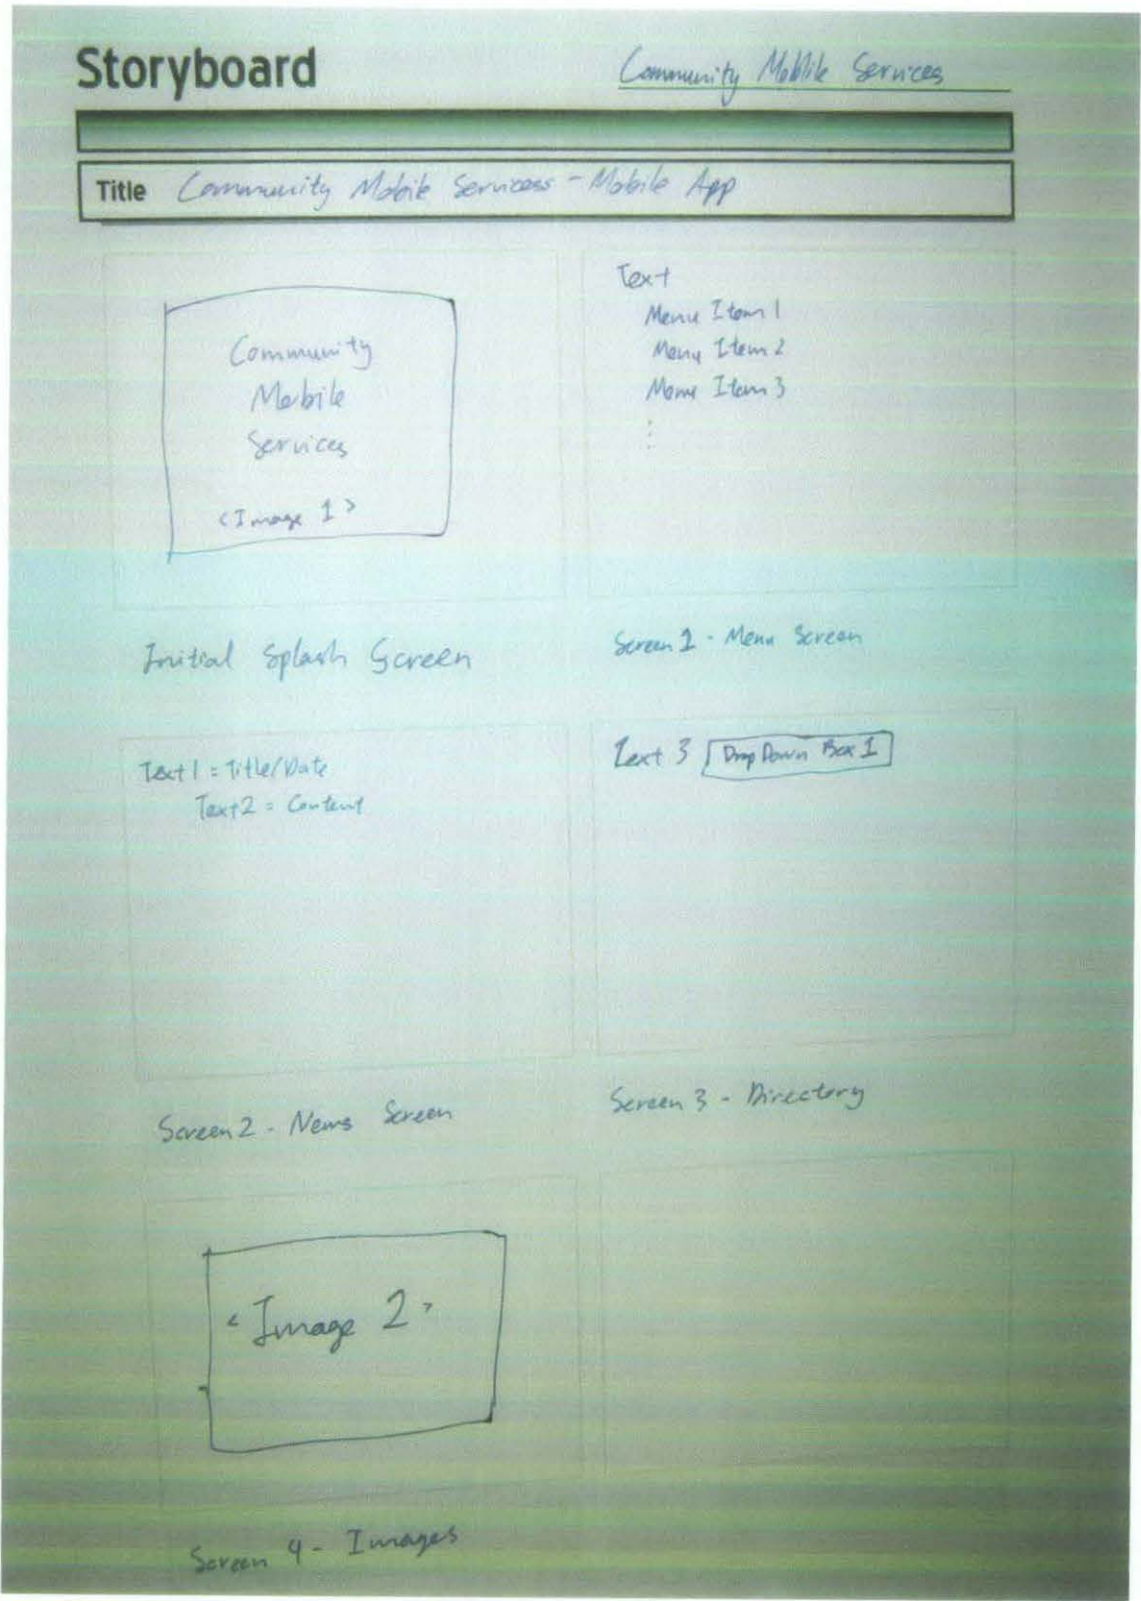 Storyboard
Community Moblile Services
Title Community Mobile Servicess - Mobile App
Community
Mobile
Services
<Image 1>
Initial Splash Screen
Text
Menu Item 1
Menu Item 2
Menu Item 3
⋮
Screen 1 - Menu Screen
Text 1 = Title/Date
Text 2 = Content
Screen 2 - News Screen
Text 3 Drop Down Box 1
Screen 3 - Directory
<Image 2>
Screen 4 - Images